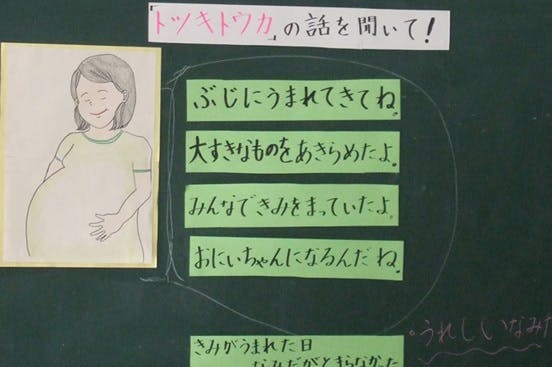 「トツキトウカ」の話を聞いて!
ぶじにうまれてきてね。
大すきなものをあきらめたよ。
みんなできみをまっていたよ。
おにいちゃんになるんだね。
きみがうまれた日
なみだがとまらなかった
・うれしいなみだ